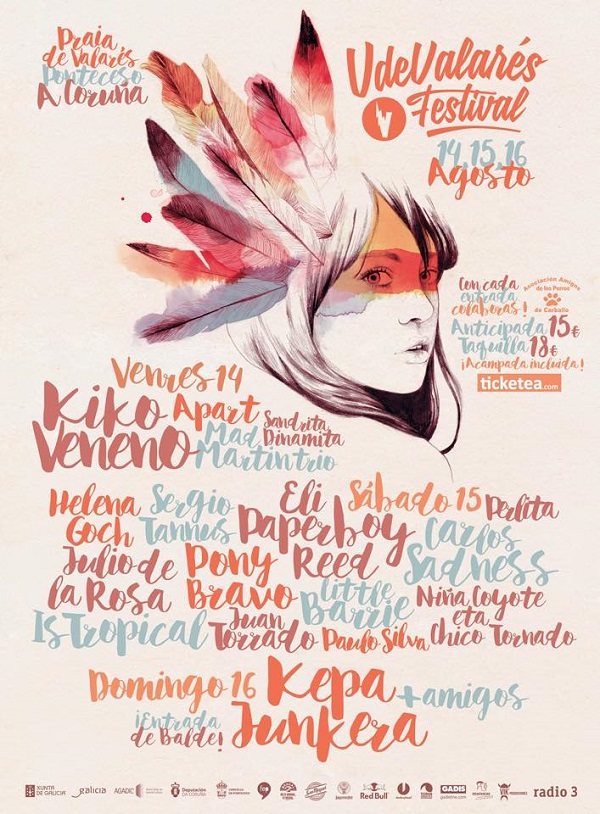 Praia
de Valarés
Ponteceso
A Coruña
VdeValarés
Festival
14, 15, 16
Agosto
Con cada
entrada
colaboras!
Asociación Amigos
de los Perros
de Carballo
Anticipada 15€
Taquilla 18€
¡Acampada incluida!
ticketea.com
Venres 14
Kiko
Veneno
Apart
Mad
Martin trio
Sandrita
Dinamita
Sábado 15
Helena
Goch
Sergio
Tannus
Eli
Paperboy
Reed
Perlita
Carlos
Sadness
Julio de
la Rosa
Pony
Bravo
Little
Barrie
Niña Coyote
eta
Chico Tornado
Is Tropical
Juan
Torrado
Paulo Silva
Domingo 16
¡Entrada
de Balde!
Kepa
Junkera
+amigos
XUNTA
DE GALICIA
galicia
AGADIC
Deputación
DA CORUÑA
Red Bull
GADIS
radio 3